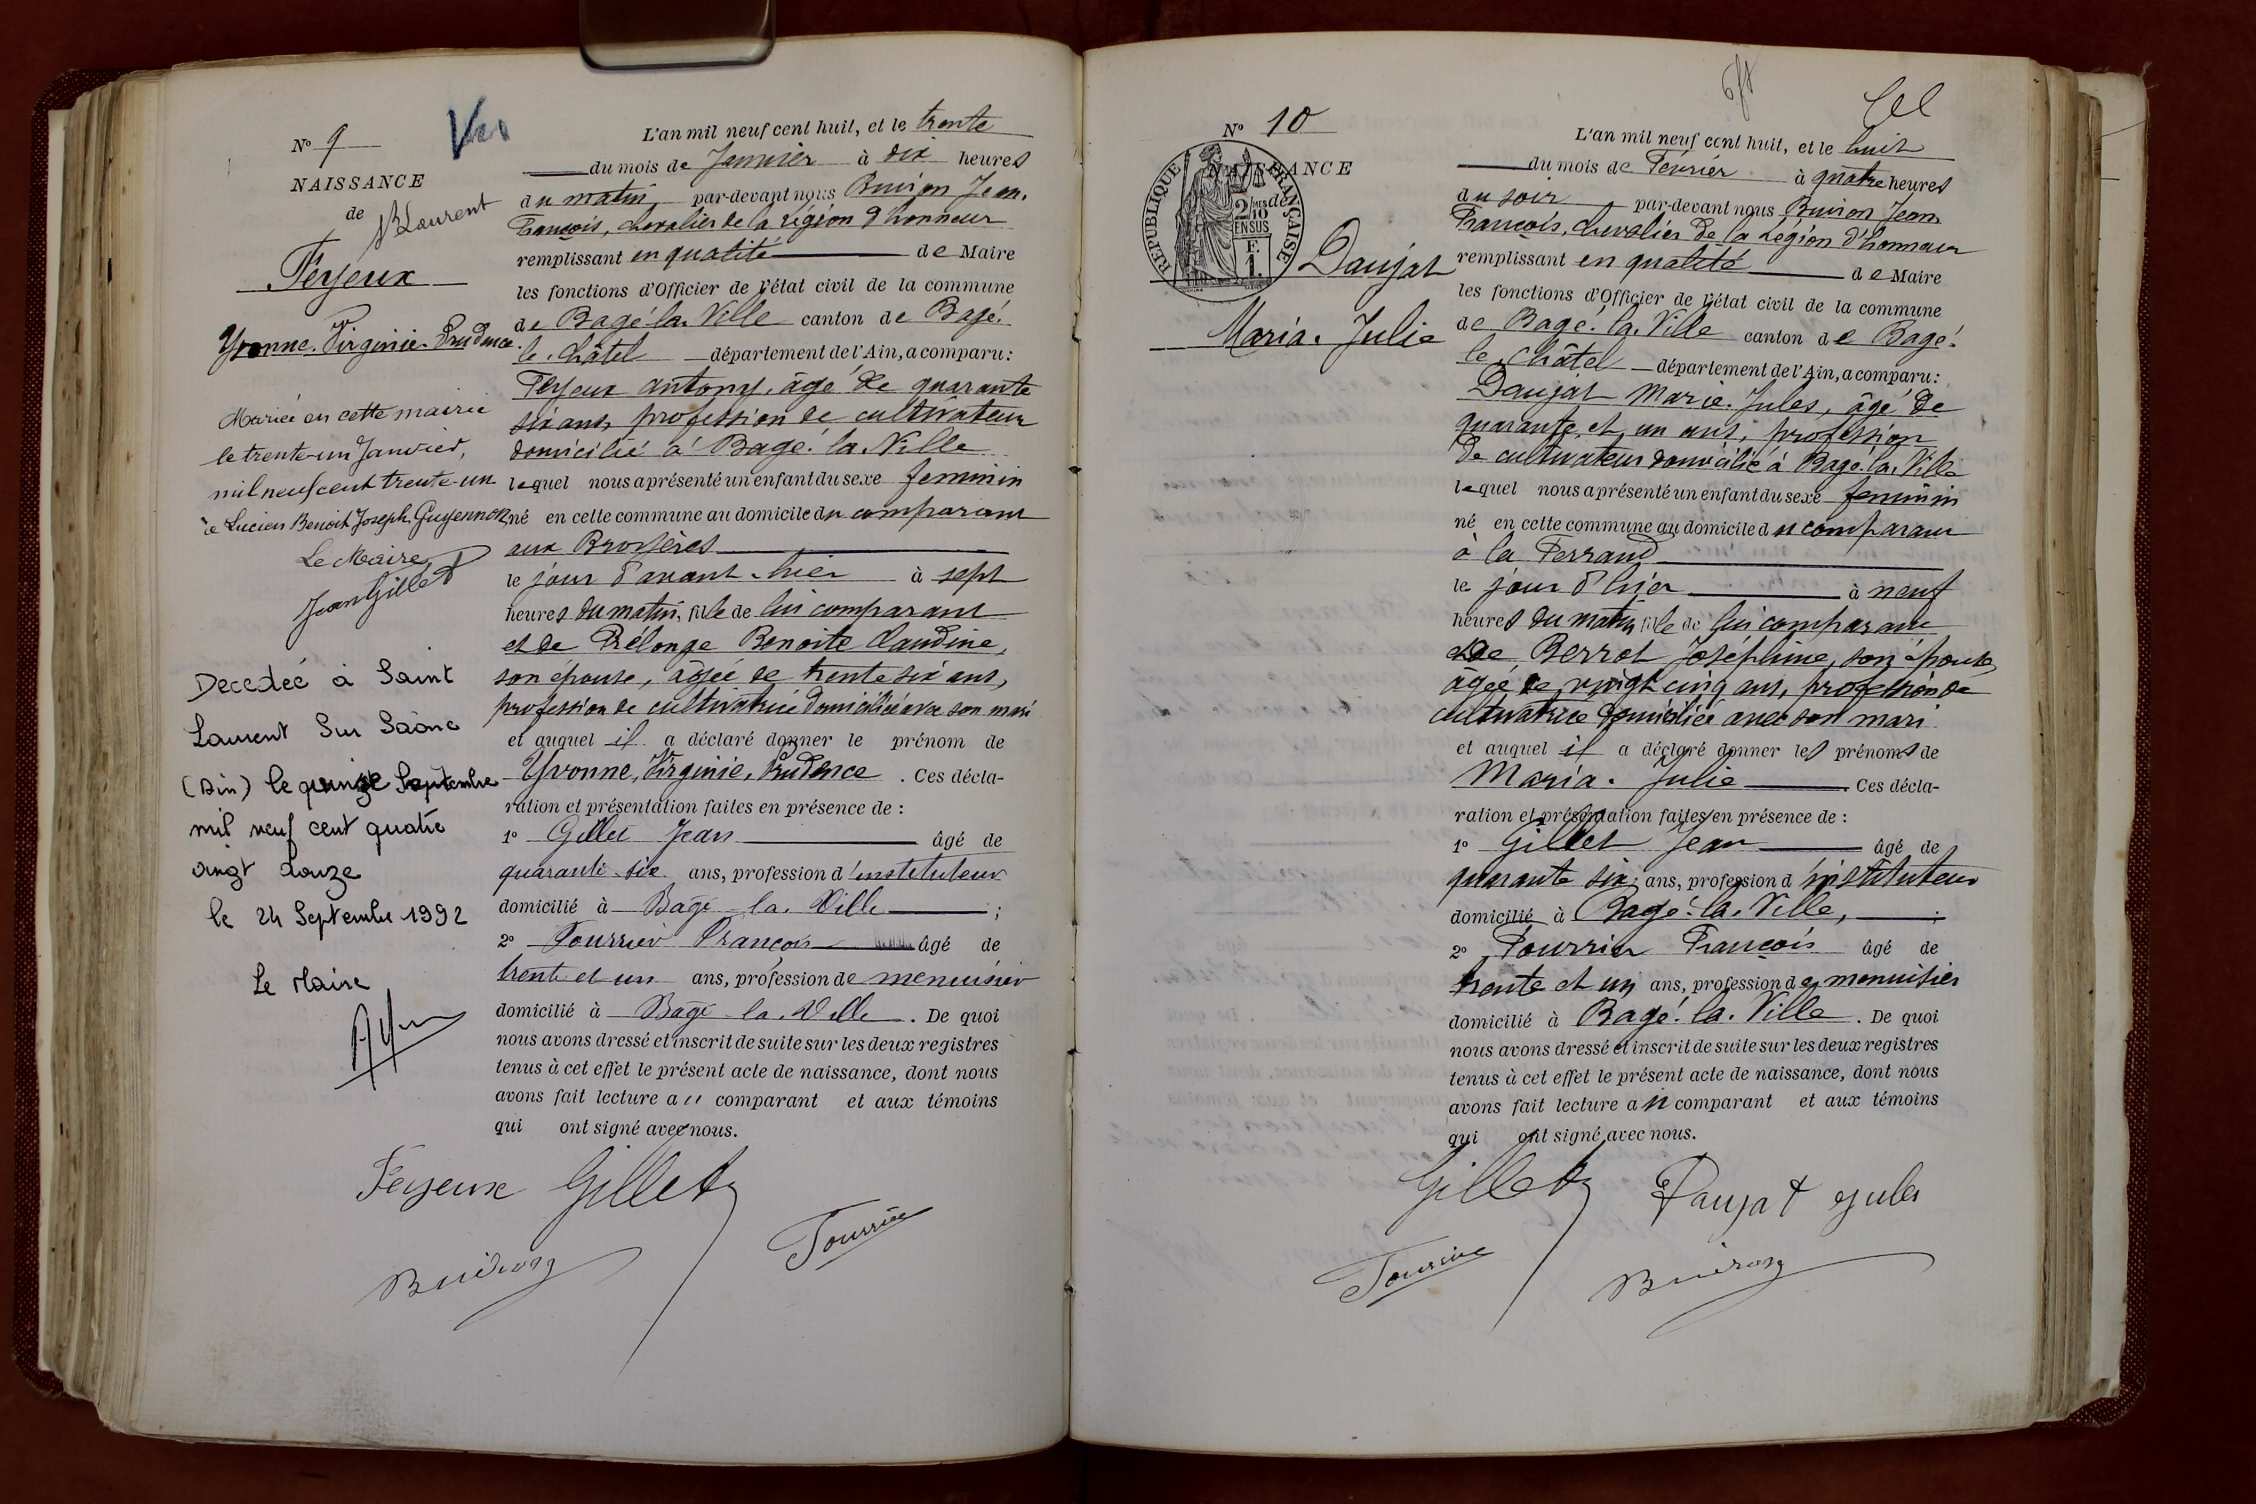 N° 9
NAISSANCE
de
St Laurent
Feyeux
Yvonne. Virginie. Prudence.
Mariée en cette mairie
le trente-un Janvier,
mil neuf cent trente-un
à Lucien Benoit Joseph Guyennon
Le Maire,
Jean Gillet
Decedée à Saint
Laurent Sur Saône
(Ain) le quinze Septembre
mil neuf cent quatre
vingt douze
le 24 Septembre 1992
Le Maire
L'an mil neuf cent huit, et le trente
du mois de Janvier à dix heures
du matin, par-devant nous Buiron Jean.
François, chevalier de la légion d'honneur
remplissant en qualité de Maire
les fonctions d'Officier de l'état civil de la commune
de Bagé. la. Ville canton de Bagé.
le. Châtel département de l'Ain, a comparu:
Feyeux antony, âgé de quarante
six ans, profession de cultivateur
domicilié à Bagé. la. Ville
lequel nous a présenté un enfant du sexe feminin
né en cette commune au domicile du comparant
aux Broyères
le jour d'avant-hier à sept
heures du matin, fille de lui comparant
et de Prélonge Benoite Claudine,
son épouse, âgée de trente six ans,
profession de cultivatrice domiciliée avec son mari
et auquel il a déclaré donner le prénom de
Yvonne, Virginie, Prudence. Ces décla-
ration et présentation faites en présence de :
1° Gillet Jean âgé de
quarante-six ans, profession d'instituteur
domicilié à Bagé-la. Ville ;
2° Fourrier François âgé de
trente et un ans, profession de menuisier
domicilié à Bagé-la. Ville. De quoi
nous avons dressé et inscrit de suite sur les deux registres
tenus à cet effet le présent acte de naissance, dont nous
avons fait lecture au comparant et aux témoins
qui ont signé avec nous.
Feyeux Gillet
Buiron Fourrier
N° 10
NAISSANCE
de
RÉPUBLIQUE FRANÇAISE
2/10 EN SUS
F.
1.
Daujat
Maria. Julie
L'an mil neuf cent huit, et le huit
du mois de Février à quatre heures
du soir par-devant nous Buiron Jean
François, chevalier de la Légion d'honneur
remplissant en qualité de Maire
les fonctions d'Officier de l'état civil de la commune
de Bagé. la. Ville canton de Bagé.
le. Châtel département de l'Ain, a comparu:
Daujat Marie. Jules, âgé de
quarante et un ans, profession
de cultivateur domicilié à Bagé. la. Ville
lequel nous a présenté un enfant du sexe feminin
né en cette commune au domicile du comparant
à la Ferrand
le jour d'hier à neuf
heures du matin fille de lui comparant
et de Berrot Joséphine, son épouse,
âgée de vingt cinq ans, profession de
cultivatrice domiciliée avec son mari
et auquel il a déclaré donner les prénoms de
Maria. Julie. Ces décla-
ration et présentation faites en présence de :
1° Gillet Jean âgé de
quarante six ans, profession d'instituteur
domicilié à Bagé. la. Ville, ;
2° Fourrier François âgé de
trente et un ans, profession de menuisier
domicilié à Bagé. la. Ville. De quoi
nous avons dressé et inscrit de suite sur les deux registres
tenus à cet effet le présent acte de naissance, dont nous
avons fait lecture au comparant et aux témoins
qui ont signé avec nous.
Gillet Daujat Jules
Fourrier Buiron